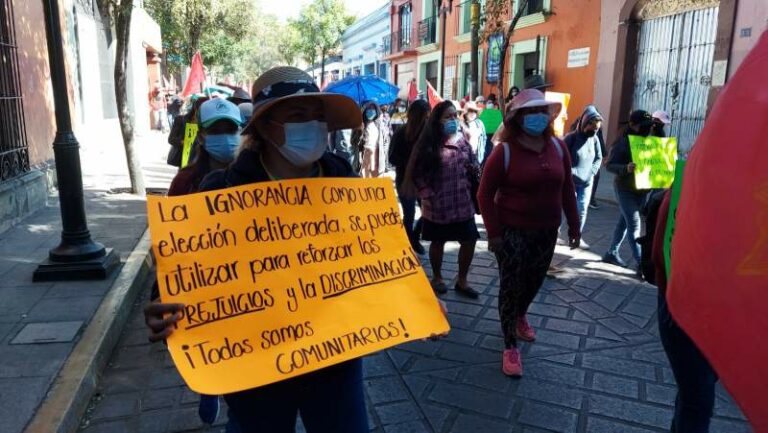 La IGNORANCIA como una
elección deliberada, se puede
utilizar para reforzar los
PREJUICIOS y la DISCRIMINACIÓN
¡Todas somos
COMUNITARIOS!